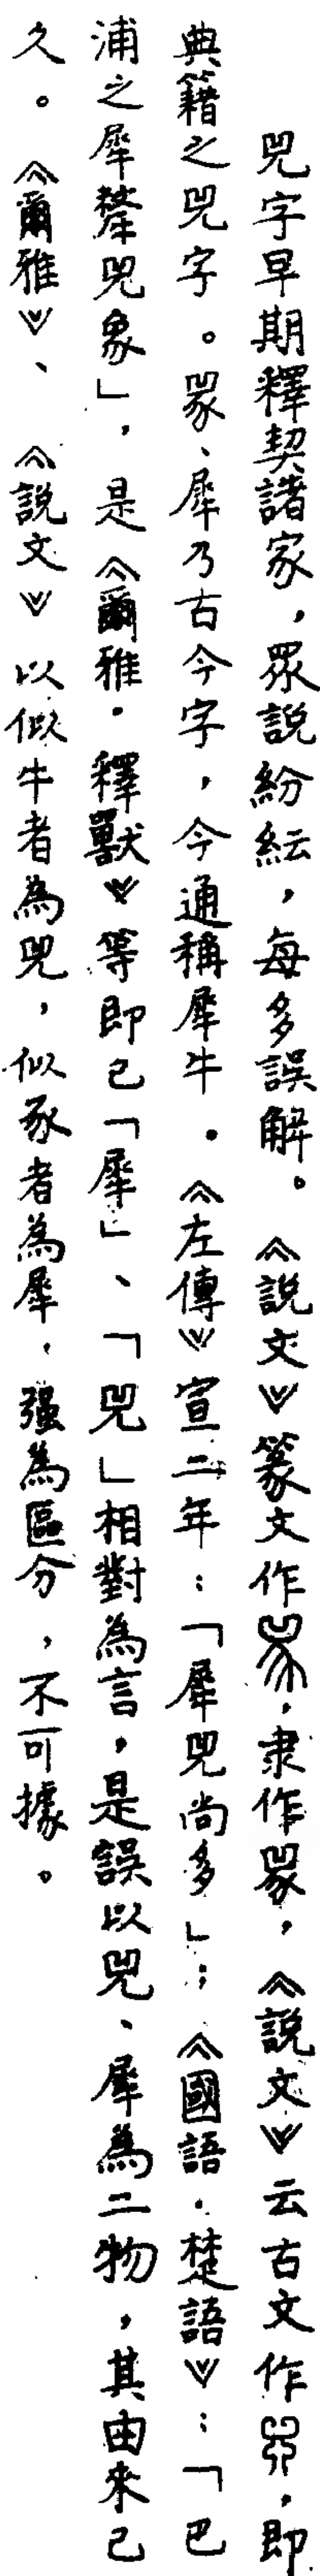 兕字早期釋契諸家，眾說紛紜，每多誤解。《說文》篆文作，隶作𤉡，《說文》云古文作，即
典籍之兕字。𤉡、犀乃古今字，今通稱犀牛。《左傳》宣二年：「犀兕尚多」；《國語．楚語》：「巴
浦之犀犛兕象」，是《爾雅．釋獸》等即已「犀」、「兕」相對為言，是誤以兕、犀為二物，其由來已
久。《爾雅》、《說文》以似牛者為兕，似豕者為犀，强為區分，不可據。